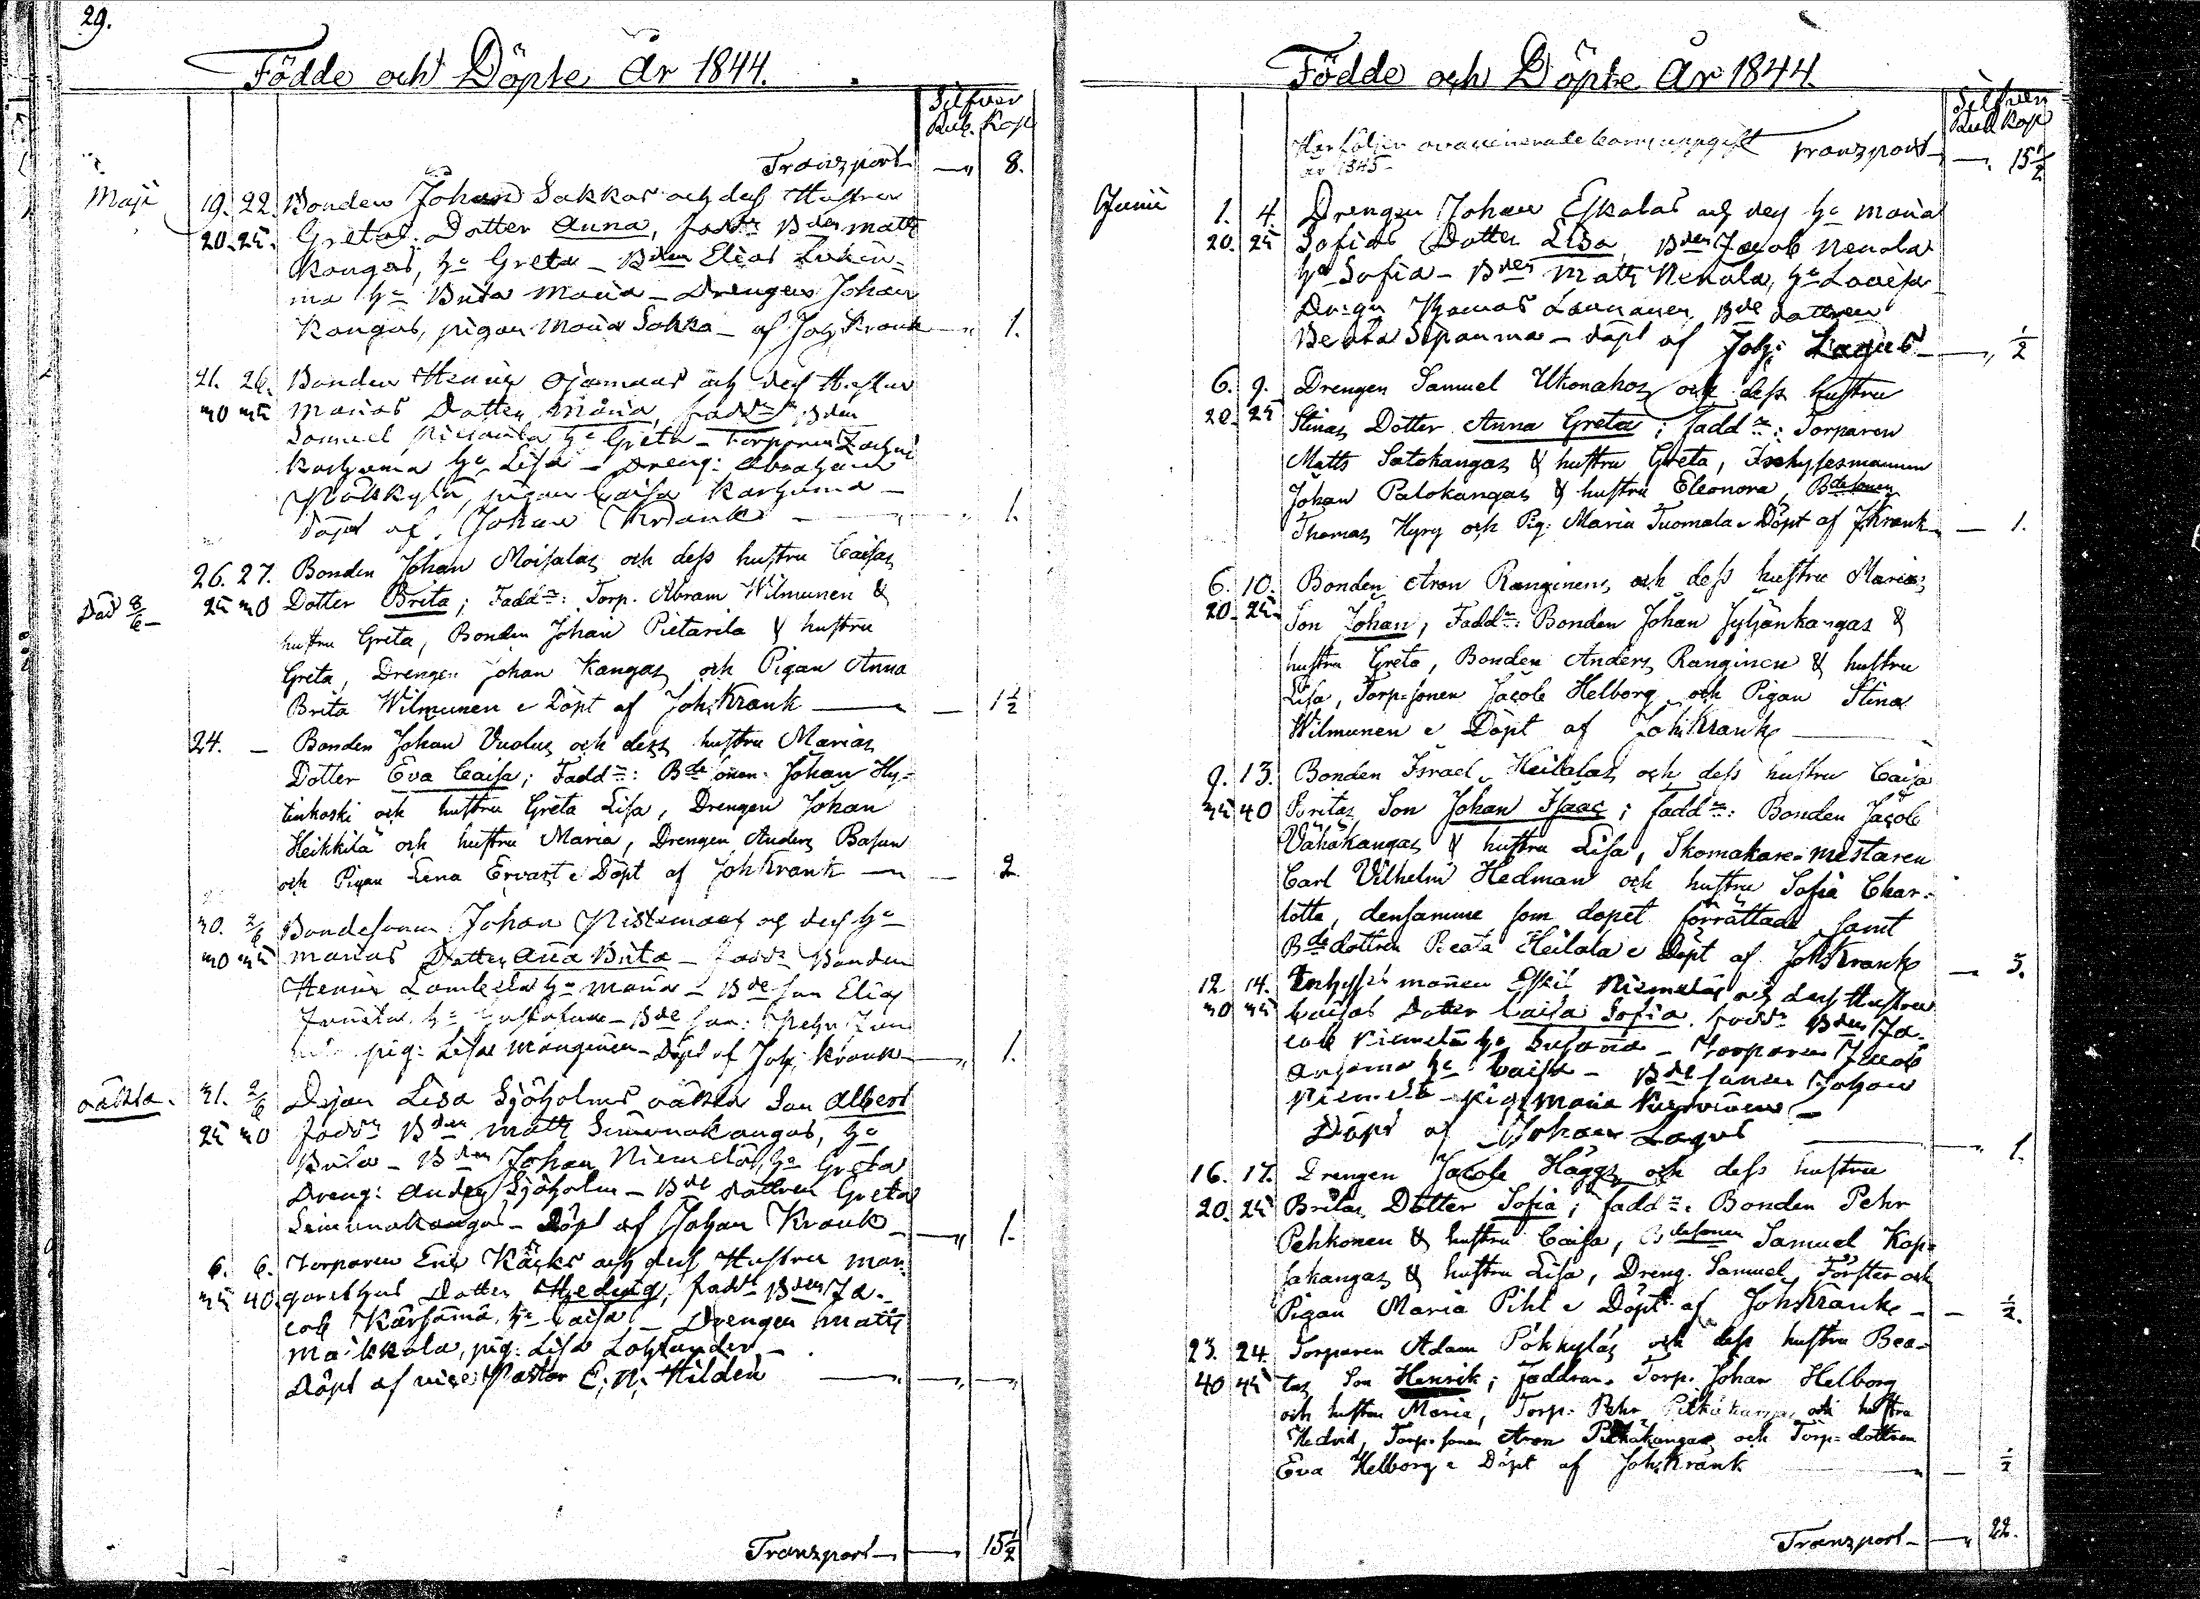 29.
Födde och Döpte År 1844.
Silfver
Rub. Kop
Transport — „ 8.
Maji 19. 22. Bonden Johan Sakkos och dess Hustru
20. 25. Gretas Dotter Anna, fadd: Bden Matts
Kangas, h. Greta – Bden Elias
ma h. Brita Maria – Drengen Johan
Kangas, pigan Maria Sakko – af Joh Krank — „ 1.
21. 26. Bonden Henric Ojamaas och dess Hustru
30 35 Marias Dotter Maria, fadd: Bden
Samuel h. Greta – Torparen Zachris
Karhuma h. Lisa – Dreng: Abraham
Pökkylä, pigan Caisa Karhuma –
döpt af Johan Krank — „ 1.
26. 27. Bonden Johan Moisalas och dess hustru Caisas
Död 8/6 – 25 30 Dotter Brita; Fadd:: Torp. Abram Wilmunen &
hustru Greta, Bonden Johan Pietarila & hustru
Greta, Drengen Johan Kangas och Pigan Anna
Brita Wilmunen e Döpt af Joh. Krank — — 1 1/2
24. – Bonden Johan Vuolus och dess hustru Marias
Dotter Eva Caisa; Fadd:: Bdesonen Johan Hy=
tinkoski och hustru Greta Lisa, Drengen Johan
Heikkilä och hustru Maria, Drengen Anders Basun
och Pigan Lena Ervast e Döpt af Joh Krank — — 2
30. 2/6 Bondesonen Johan och dess h.
30 35 Marias Dotter Aña Brita – fadd: Bonden
Henric h. Maria – Bde son Elias
h. Gustafva – Bde son: Pehr
pig: Lisa Manginen – Döpt af Joh: Krank — „ 1.
oäkta. 31. 2/6 Pigan Lisa Sjöholms oäkta Son Albert
25 30 fadd: Bden Matts Simunakangas, h.
Brita – Bden Johan Niemelä, h. Greta
Dreng: Anders Sjöholm – Bde dottren Greta
Simunakangas – Döpt af Johan Krank — „ 1.
6. 6. Torparen Eric Käcks och dess Hustru Mar=
35 40. garethas Dotter Hedvig, fadd: Bden Ja=
cob Kärsämä, h. Caisa – Drengen Matts
Markkola, pig: Lisa Lohlander –
Döpt af vice Pastor E. N. Hildén — „ —
Transport — „ 15 1/2
Födde och Döpte År 1844.
Silfver
Rub Kop
Här följer
år 1845 – Transport — „ 15 1/2
Junii 1. 4. Drengen Johan Eskolas och dess h. Maria
20. 25 Sofias Dotter Lisa, Bden Jacob Nenola
h. Sofia – Bden Matts Nenola, h. Lovisa
Dreng Thomas Lounanen, Bde dottren
Beata Sipanma – döpt af Joh: Lagus — „ 1/2
6. 9. Drengen Samuel Ukonahos och dess hustru
20. 25 Stinas Dotter Anna Greta; fadd:: Torparen
Matts Satokangas & hustru Greta, Inhysesmannen
Johan Palokangas & hustru Eleonora, Bdesonen
Thomas Hyry och Pig: Maria Tuomala e Döpt af J Krank — — 1.
6. 10. Bonden Aron Ranginens och dess hustru Marias
20. 25. Son Johan, Fadd:: Bonden Johan Jyljänkangas &
hustru Greta, Bonden Anders Ranginen & hustru
Lisa, Torp=sonen Jacob Helborg och Pigan Stina
Wilmunen e Döpt af Joh: Krank —
9. 13. Bonden Israel Heilalas och dess hustru Caisa
35 40 Britas Son Johan Isaac; fadd:: Bonden Jacob
Vähäkangas & hustru Lisa, Skomakare=mestaren
Carl Vilhelm Hedman och hustru Sofia Char=
lotta, densamme som dopet förrättade samt
Bdedottren Beata Heilala e Döpt af Joh Krank — 3.
12 14. Inhyses mañen Eskil Niemeläs och dess Hustru
30 35 Caisas Dotter Caisa Sofia. fadd: Bden Ja=
cob Niemelä h. Susaña – Torparen Jacob
h. Caisa – Bde sonen Johan
Niemelä – pig Maria
Döpt af Johan Lagus — „ 1.
16. 17. Drengen Jacob Häggs och dess hustru
20. 25 Britas Dotter Sofia; fadd:: Bonden Pehr
Pehkonen & hustru Caisa, Bdesonen Samuel Kop=
sakangas & hustru Lisa, Dreng. Samuel Förster och
Pigan Maria Pihl e Döpt af Joh Krank — — 1/2.
23. 24. Torparen Adam Pökkyläs och dess hustru Bea=
40 45 tas Son Henrik; Faddrar. Torp. Johan Helborg
och hustru Maria, Torp: Pehr Pitkäkangas och hustru
Hedvid, Torp=sonen Aron Pitkäkangas och Torp=dottren
Eva Helborg e Döpt af Joh: Krank — — 1/2
Transport — „ 22.